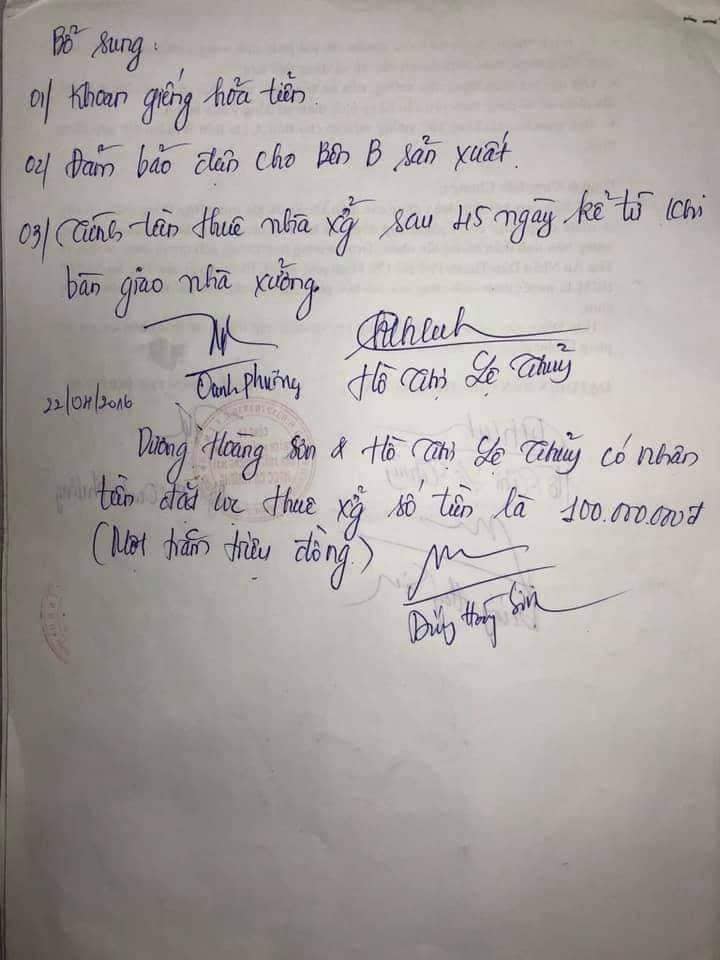 Bổ sung:
01/ Khoan giếng hỏa tiễn.
02/ Đảm bảo điện cho Bên B sản xuất.
03/ Tính tiền thuê nhà xg̉ sau 45 ngày kể từ khi
bàn giao nhà xưởng.
Oanh Phương
Hồ Thị Lệ Thủy
22/04/2016
Dương Hoàng Sơn & Hồ Thị Lệ Thủy có nhân
tiền đặt cọc thuê xg̉ số tiền là 100.000.000đ
(Một trăm triệu đồng)
Dương Hoàng Sơn